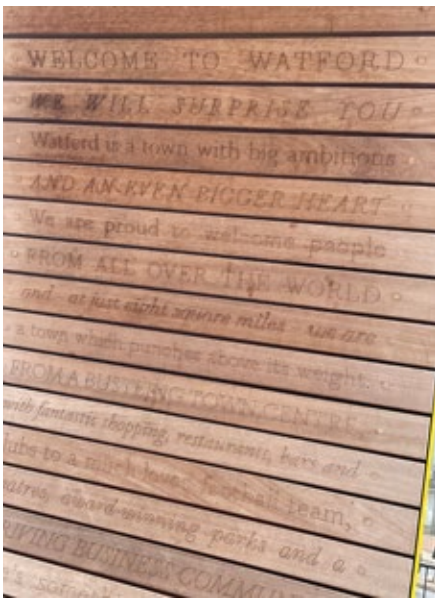 WELCOME TO WATFORD
WE WILL SURPRISE YOU
Watford is a town with big ambitions
AND AN EVEN BIGGER HEART
We are proud to welcome people
FROM ALL OVER THE WORLD
and at just eight square miles we are
a town which punches above its weight.
FROM A BUSTLING TOWN CENTRE,
with fantastic shopping, restaurants, bars and
lubs to a much loved football team,
eatres, award-winning parks and a
RIVING BUSINESS COMMUN